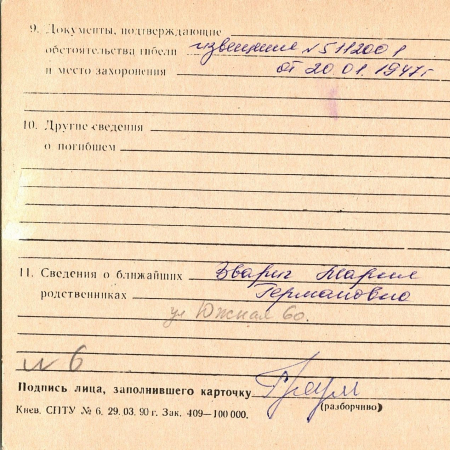 9. Документы, подтверждающие
обстоятельства гибели извещение №5112001
и место захоронения от 20 01. 1947г
10. Другие сведения
о погибшем
11. Сведения о ближайших Зварич Мария
родственниках Германовна
ул Южная 60.
№ 6
Подпись лица, заполнившего карточку
(разборчиво)
Киев. СПТУ № 6. 29. 03. 90 г. Зак. 409—100 000.